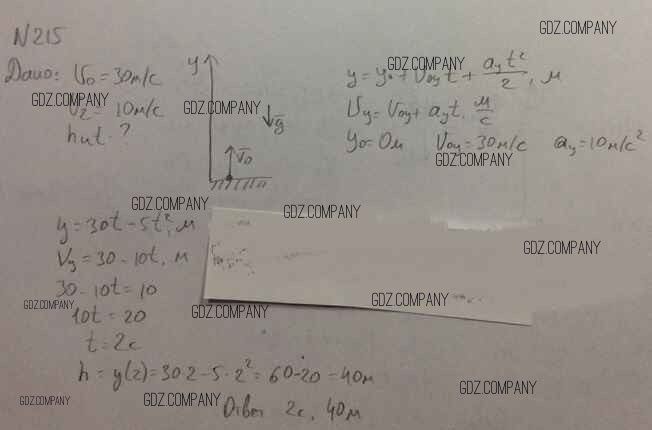 N 215
Дано: V₀ = 30м/с
V₂ = 10м/с
h и t - ?
y
g
V₀
y = y₀ + V₀y t + ayt²/2, м
Vy = V₀y + ayt, м/с
y₀ = 0м V₀y = 30м/с ay = 10м/с²
y = 30t - 5t², м
Vy = 30 - 10t, м
30 - 10t = 10
10t = 20
t = 2с
h = y(2) = 30·2 - 5·2² = 60 - 20 = 40м
Ответ 2с, 40м
GDZ.COMPANY
GDZ.COMPANY
GDZ.COMPANY
GDZ.COMPANY
GDZ.COMPANY
GDZ.COMPANY
GDZ.COMPANY
GDZ.COMPANY
GDZ.COMPANY
GDZ.COMPANY
GDZ.COMPANY
GDZ.COMPANY
GDZ.COMPANY
GDZ.COMPANY